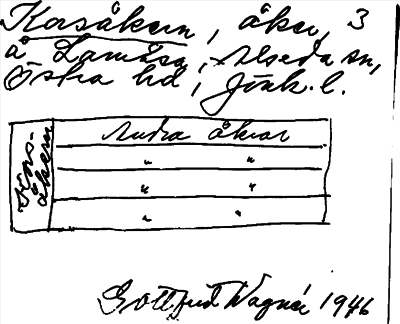 Korsåkern, åker, 3
å Lamåsa, Alseda sn,
Östra hd, Jönk. l.
Kors-
åkern
Andra åkrar
"  "
"  "
"  "
Gottfrid Wagnér 1946